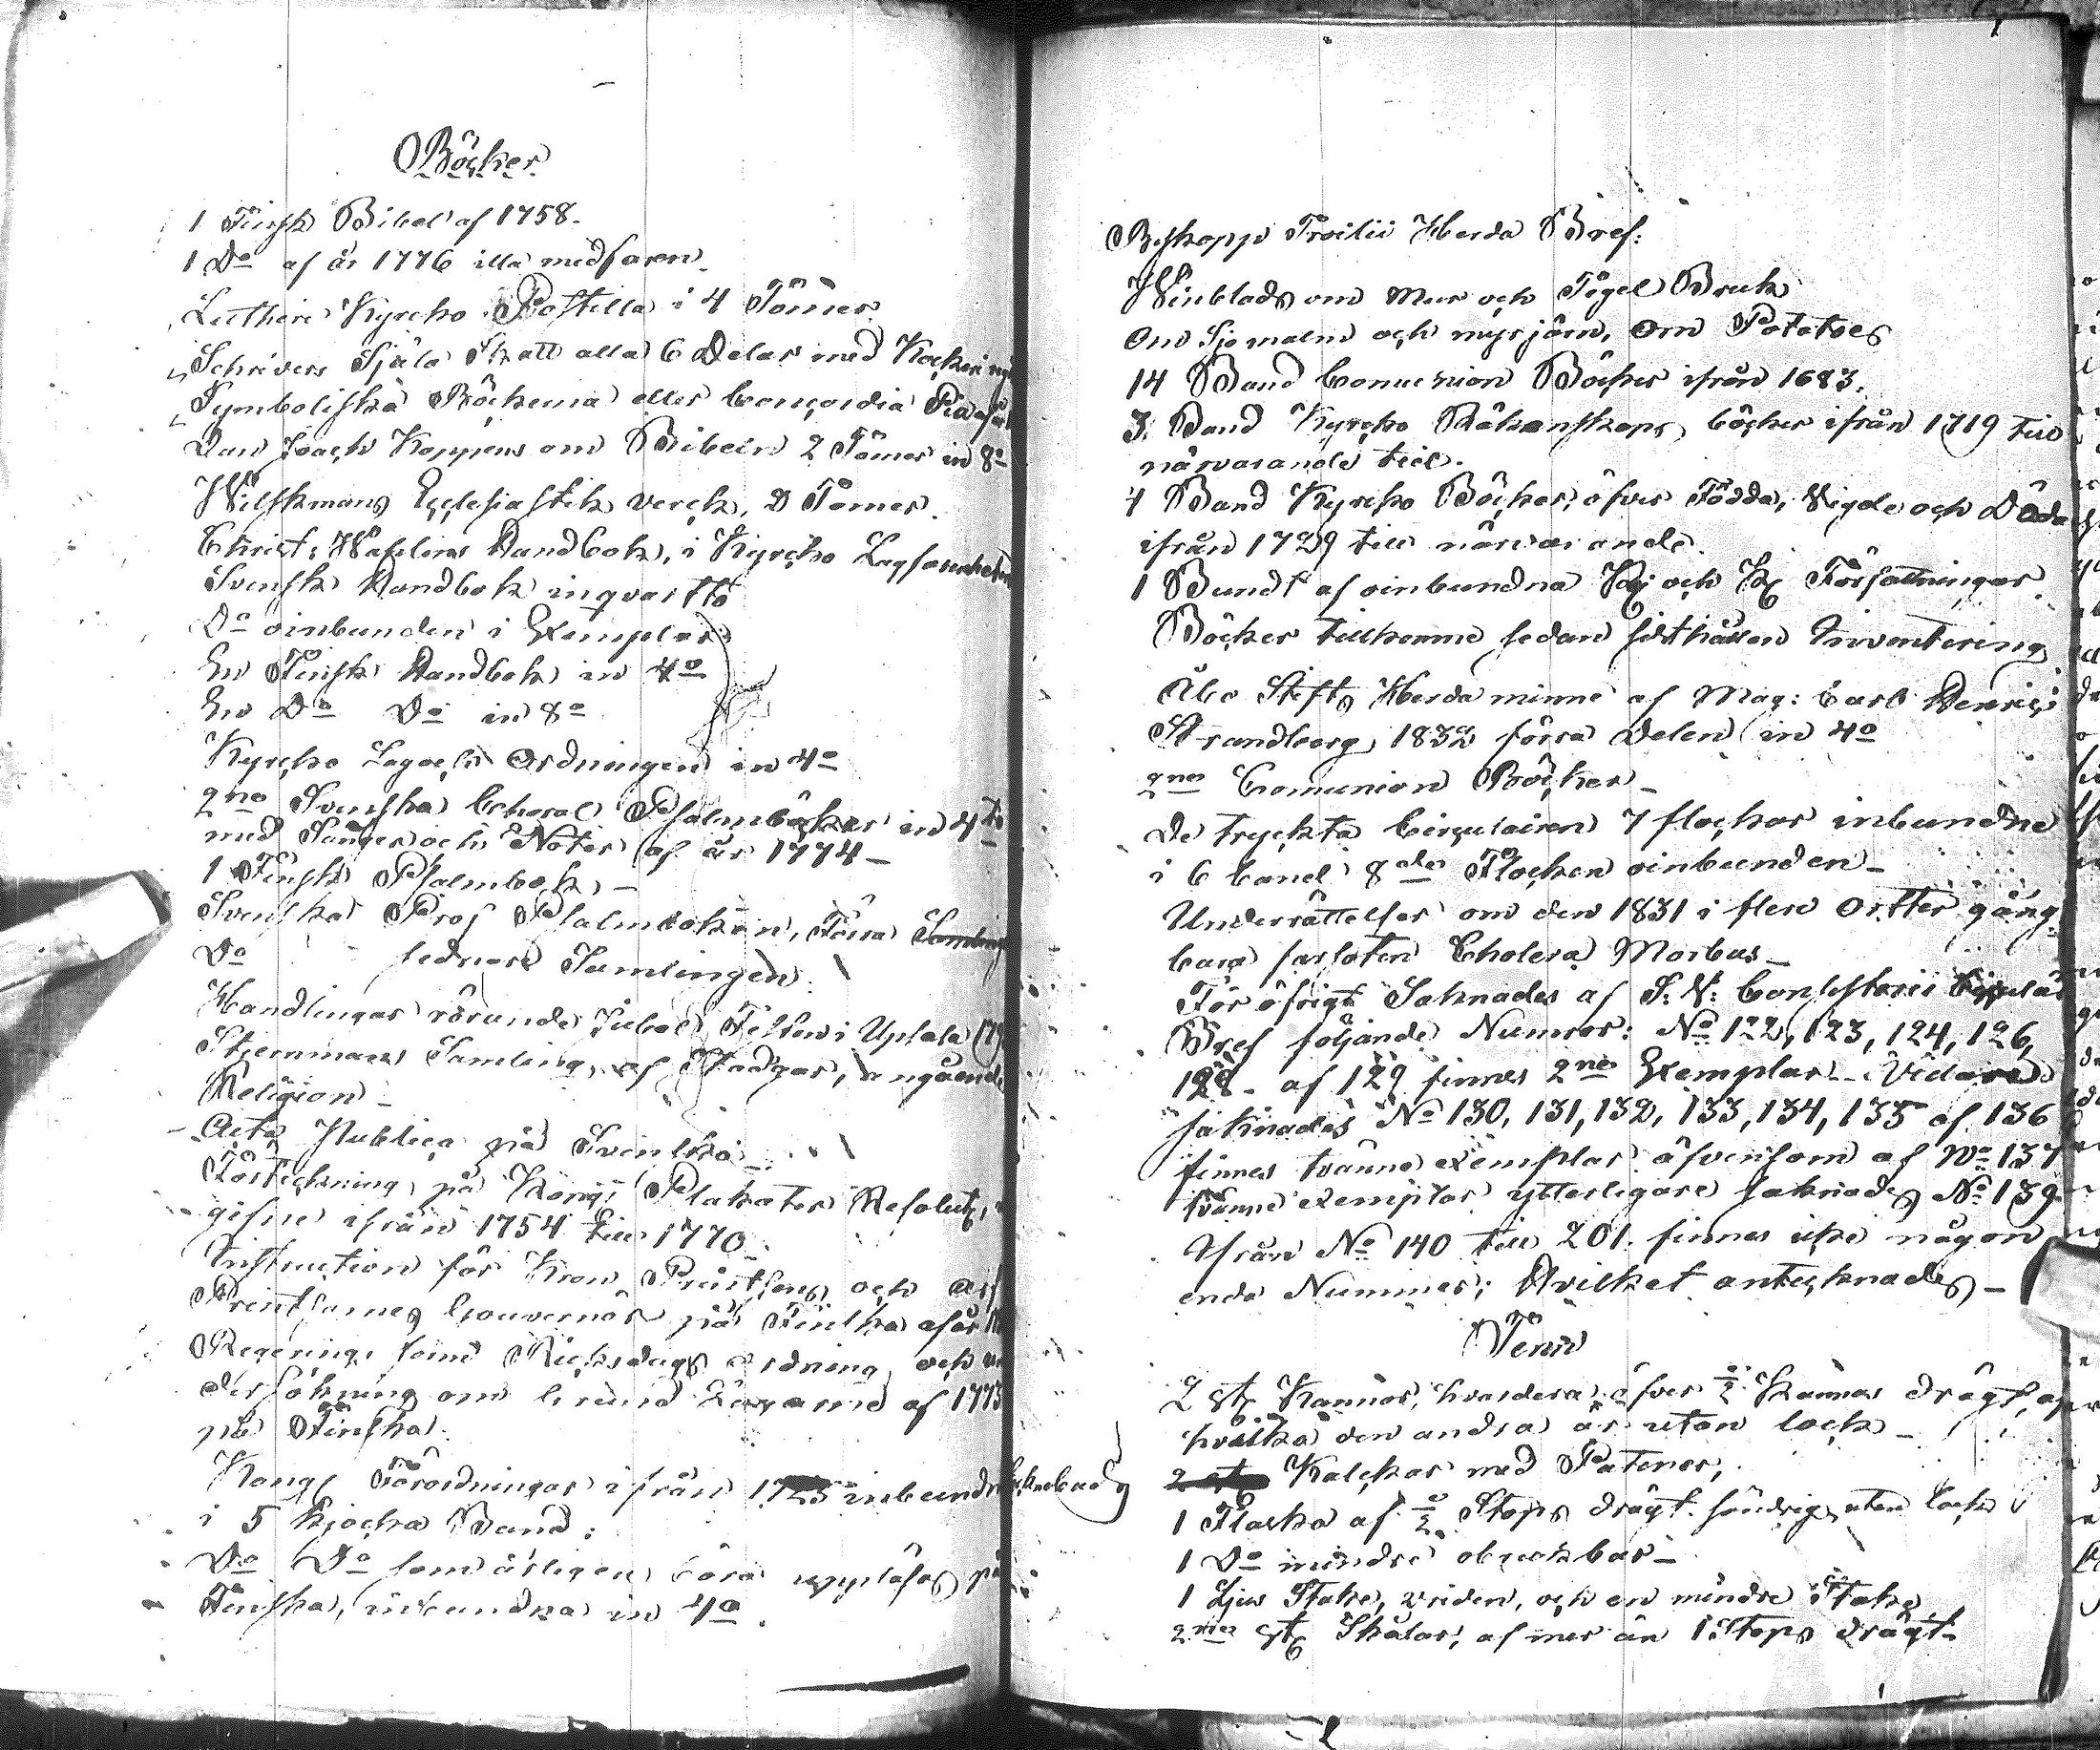 Böcker
1 Finsk Bibel af 1758.
1 Do af år 1776 illa medfaren.
Lutheri Kyrcko Postilla i 4 Tomer.
Schrivers Själa Skatt alla 6 Delar med
Symboliska Böckerna eller Concordia Pia
Dan Joach Koppens om Bibeln 2 Tomer in 8o
Wilskmans Ecclesiastik verck, 2 Tomer.
Christ: Handbok, i Kyrcko Lagfarenheten
Svensk Handbok in qvartto
Do oinbunden i Exemplar
En Finsk Handbok in 4o
En Do Do in 8o
Kyrcko Lag och Ordningen in 4o
2ne Svenska Choral Psalmböcker in 4to
med Sånger och Noter af år 1774 –
1 Finsk Psalmbok –
Svenska Prof Psalmboken, Förra Samling
Do sednare Samlingen.
Handlingar rörande Jubel Festen i Upsala
Stjernmans Samling, af Stadgar, angående
Religion –
Acta Publica på Svenska –
Förteckning på Kongl: Plakater Resolut,
gifne ifrån 1754 till 1770.
Instruction för Kron Printsens och Arf
Printsarnes Gouvernör på Finska af år
Regerings samt Ricksdags ordning och
dersökning om Grund Lagarne af 1773
på Finska.
Kongl Förordningar ifrån 1725 inbundne
i 5 tjocka Band:
Do Do som årligen böra uppläsas på
Finska, inbundna in 4o.
Biskopp Troilii Herda Bref:
Winblads om Mur och Tegel Bruk
Om Sjömalm och myrjärn, Om Potatoes
14 Band Comunion Böcker ifrån 1683.
3. Band Kyrcko Räkenskaps böcker ifrån 1719 till
närvarande tid.
4 Band Kyrcko Böcker, öfver Födda, Vigde och Döda
ifrån 1729 till närvarande.
1 Bundt af oinbundna och Författningar.
Böcker tillkomne sedan sisthållen Inventering
Åbo Stifts Herda minne af Mag: Carl Henric:
Strandberg 1832 förra Delen in 4o
2ne Comunion Böcker –
De tryckta Circulairen 7 flockar inbundne
i 6 band 8de Flocken oinbunden –
Underrättelser om den 1831 i flere Orter gång
bara farsoten Cholera Morbus –
För öfrigt Saknades af S: V: Consistorii Circulär
Bref följande Numror: No 122, 123, 124, 126,
128 – af 129 finnes 2ne Exemplar – Vidare
saknades No 130, 131, 132, 133, 134, 135 af 136
finnes tvänne exemplar äfvensom af No 137
tvänne exemplar ytterligare saknades No 139.
Ifrån No 140 till 201. finnes icke någon
enda Nummer; Hvilket antecknades –
Tenn
2 st Kannor, hvardera öfver ½ Kannas drägt, af
hvilka den andra är utan lock –
2 st Kalckar med Patener,
1 Flaska af ½ Stops drägt söndrig utan lock
1 Do mindre obrukbar –
1 Ljus Stake, vriden, och en mindre Stake
2ne st Skålar, af mer än 1 Stops drägt –